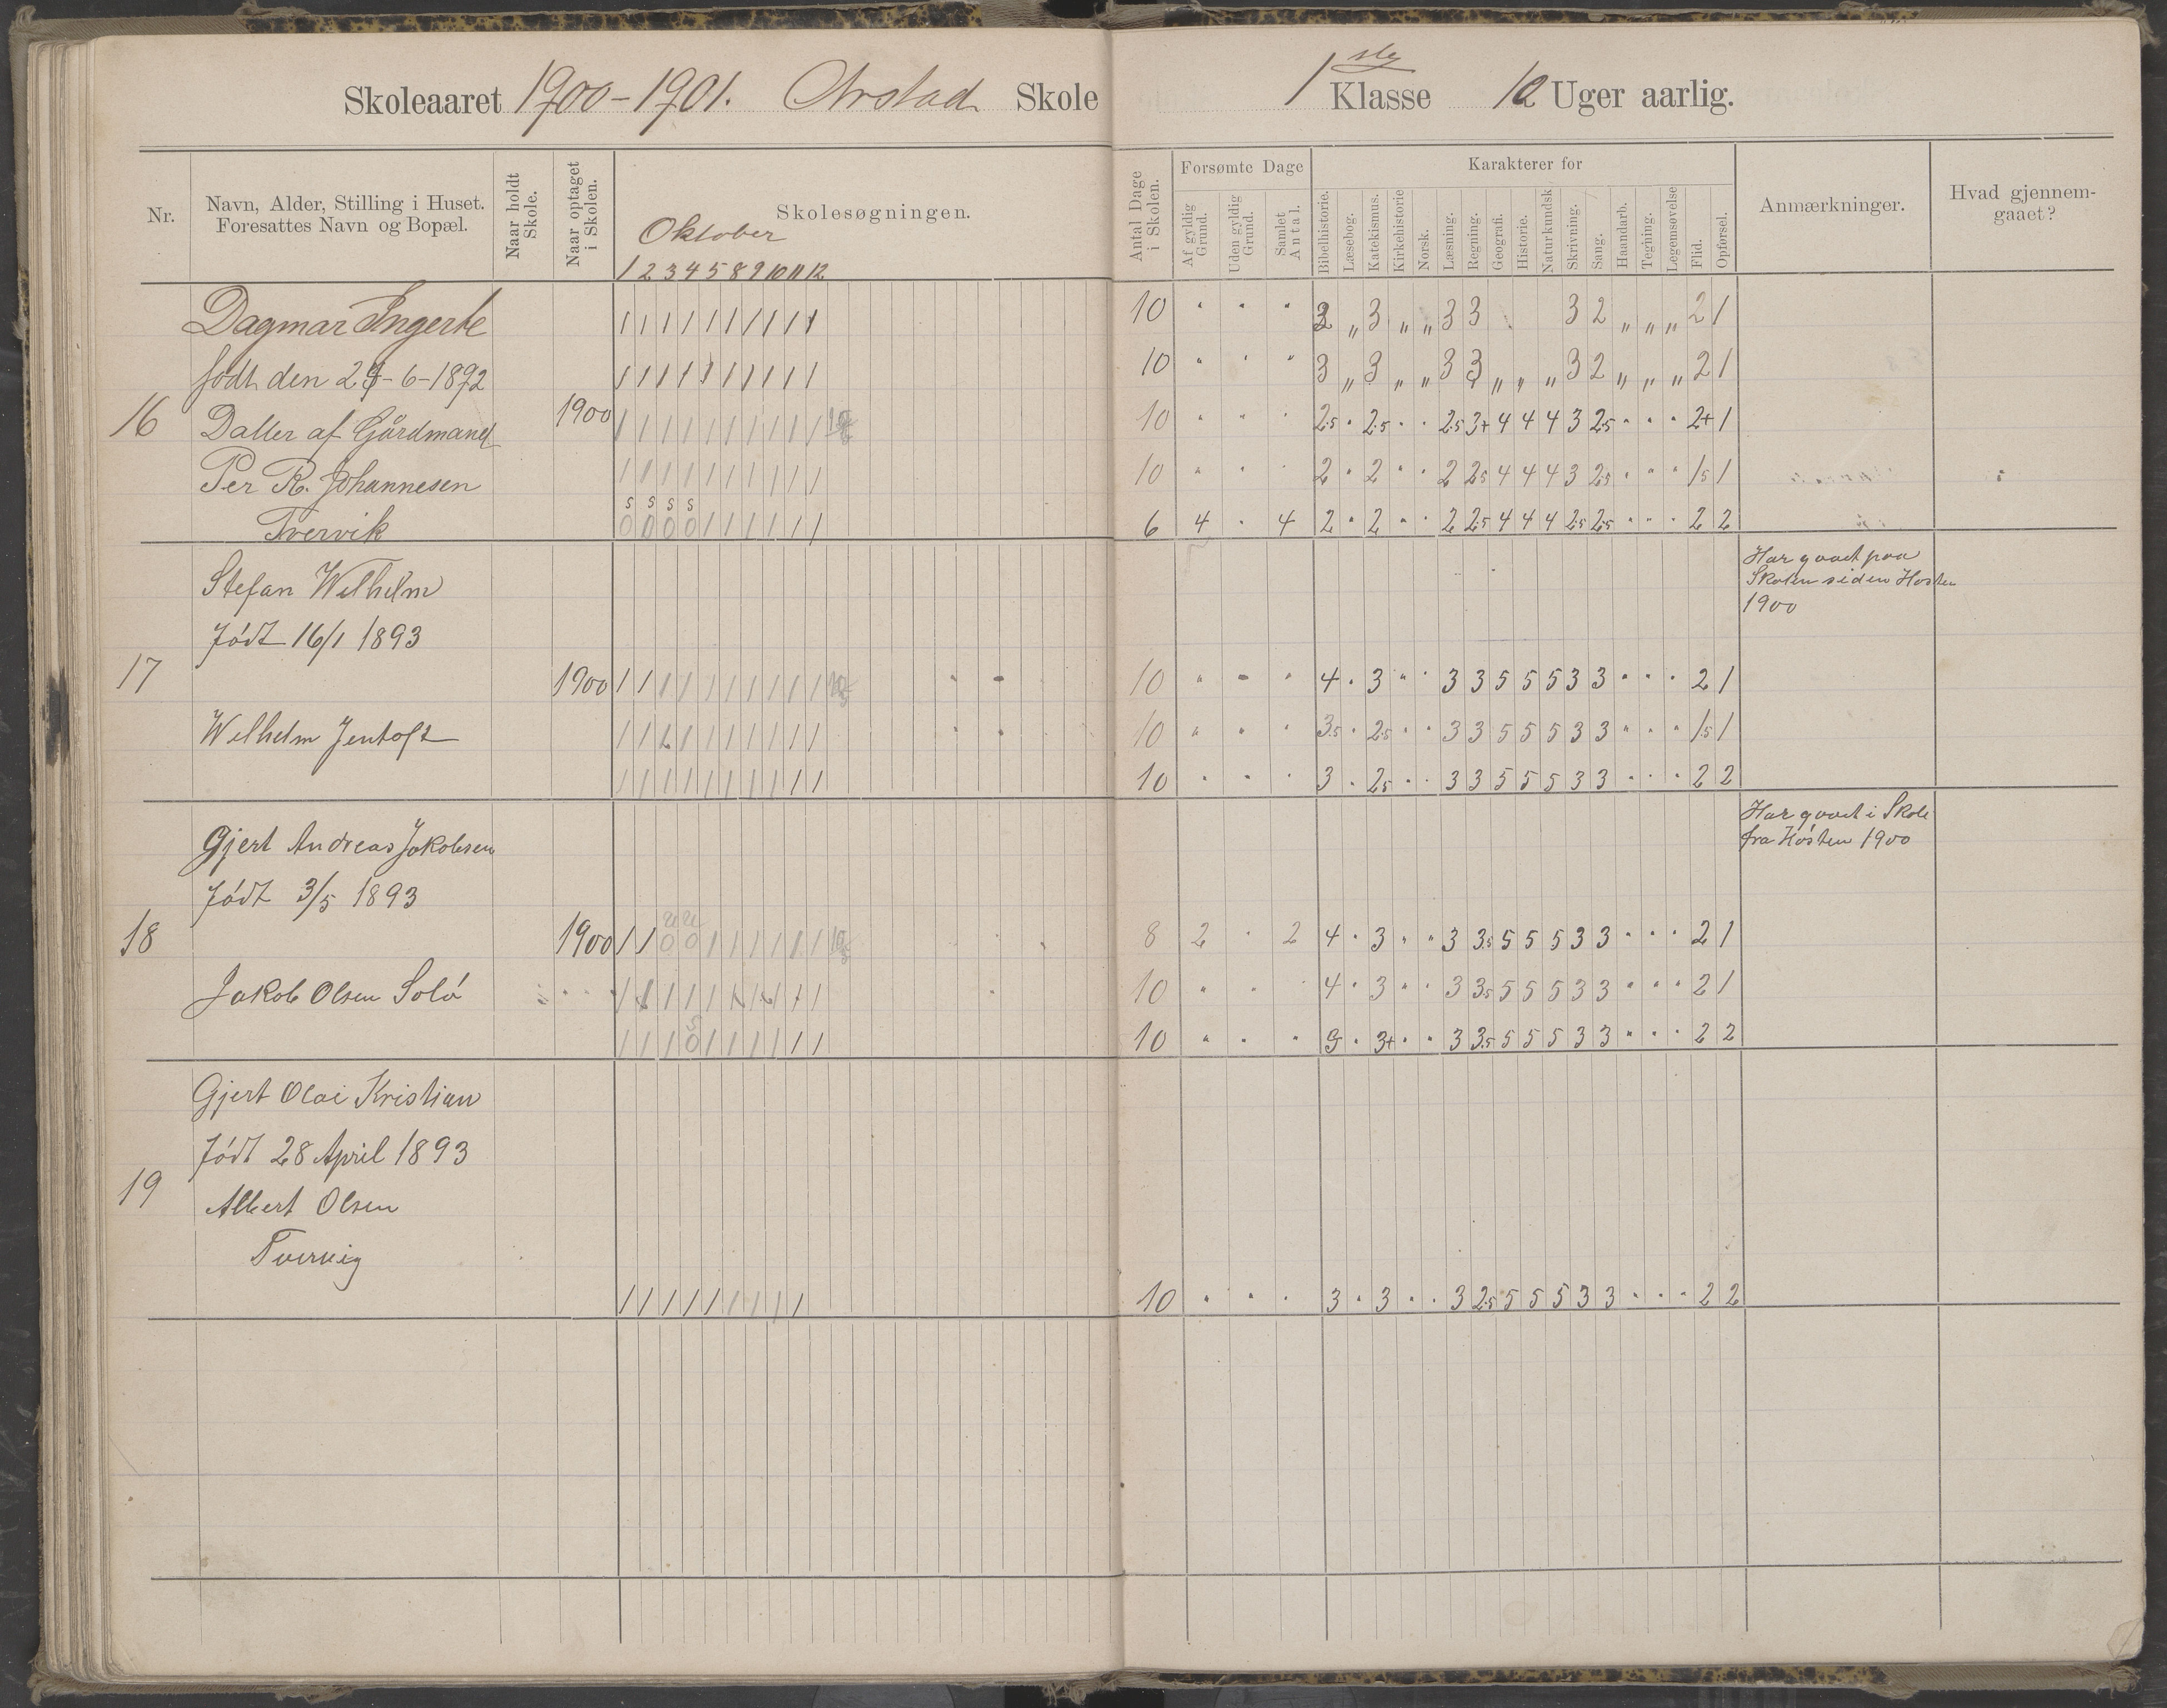 Skoleaaret 1900-1901. Arstad Skole
1ste Klasse 12 Uger aarlig.
Nr.
Navn, Alder, Stilling i Huset.
Foresattes Navn og Bopæl.
Naar holdt
Skole.
Naar optaget
i Skolen.
Skolesøgningen.
Oktober
1 2 3 4 5 8 9 10 11 12
Antal Dage
i Skolen.
Forsømte Dage
Af gyldig
Grund.
Uden gyldig
Grund.
Samlet
Antal.
Karakterer for
Bibelhistorie.
Læsebog.
Katekismus.
Kirkehistorie
Norsk.
Læsning.
Regning.
Geografi.
Historie.
Naturkundsk
Skrivning.
Sang.
Haandarb.
Tegning.
Legemsøvelse
Flid.
Opførsel.
Anmærkninger.
Hvad gjennem-
gaaet?
Dagmar Ingerte
/ / / / / / / / / /
10 " " " 3 „ 3 „ „ 3 3 3 2 „ „ „ 2 1
født den 24-6-1892
/ / / / / / / / / /
10 " " " 3 „ 3 „ „ 3 3 „ „ „ 3 2 „ „ „ 2 1
16 Datter af Gårdmand 1900
/ / / / / / / / / /
10 " " " 2.5 " 2.5 " " 2.5 3+ 4 4 4 3 2.5 " " " 2+ 1
Per R. Johannesen
/ / / / / / / / / /
10 " " " 2 " 2 " " 2 2.5 4 4 4 3 2.5 " " " 1.5 1
s s s s
Tvervik
0 0 0 0 / / / / / /
6 4 " 4 2 " 2 " " 2 2.5 4 4 4 2.5 2.5 " " " 2 2
Stefan Wilhelm
Har gaaet paa
Skolen siden Høsten
1900
Født 16/1 1893
17 1900 / / / / / / / / / /
10 " " " 4 " 3 " " 3 3 5 5 5 3 3 " " " 2 1
Wilhelm Jentoft
/ / / / / / / / / /
10 " " " 3.5 " 2.5 " " 3 3 5 5 5 3 3 " " " 1.5 1
/ / / / / / / / / /
10 " " " 3 " 2.5 " " 3 3 5 5 5 3 3 " " " 2 2
Gjert Andreas Jakobsen
Har gaaet i Skole
fra Høsten 1900
Født 3/5 1893
u u
18 1900 / / 0 0 / / / / / /
8 2 " 2 4 " 3 " " 3 3.5 5 5 5 3 3 " " " 2 1
Jakob Olsen Solø
/ / / / / / / / / /
10 " " " 4 " 3 " " 3 3.5 5 5 5 3 3 " " " 2 1
s
/ / / 0 / / / / / /
10 " " " " 3+ " " 3 3.5 5 5 5 3 3 " " " 2 2
Gjert Olai Kristian
Født 28 April 1893
19 Albert Olsen
Tvervig
/ / / / / / / / /
10 " " " 3 " 3 " " 3 2.5 5 5 5 3 3 " " " 2 2